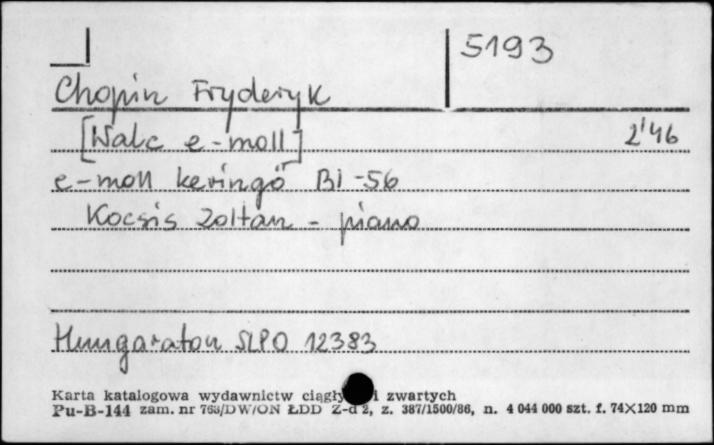 5193
Chopin Fryderyk
[Walc e-moll] 2'46
e-moll keringő BI-56
Kocsis Zoltan - piano
Hungaraton SLPD 12383
Karta katalogowa wydawnictw ciągły i zwartych
Pu-B-144 zam. nr 763/DW/ON ŁDD Z-d 2, z. 387/1500/86, n. 4 044 000 szt. f. 74×120 mm